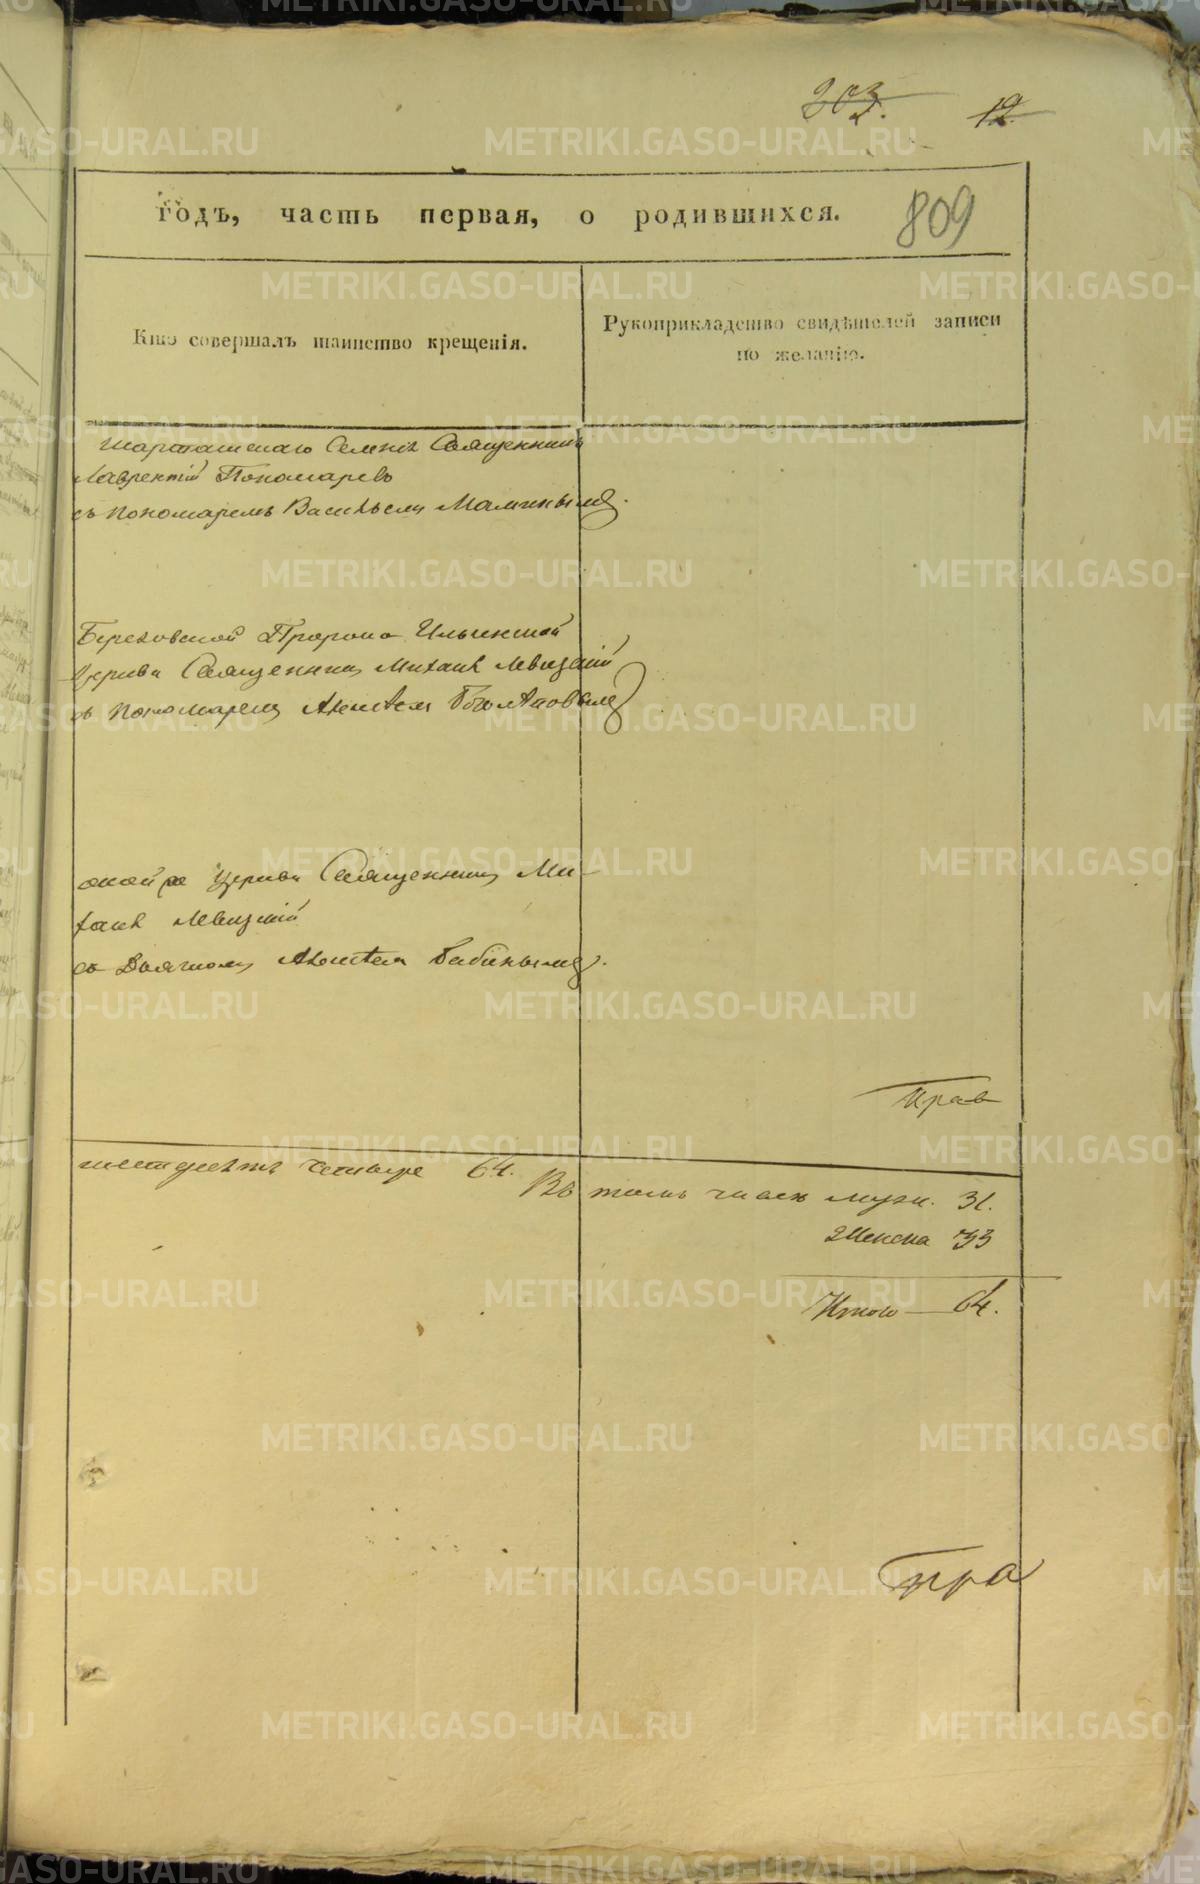 303. 12.
годъ, часть первая, о родившихся. 809
Кто совершалъ таинство крещенія.
Рукоприкладство свидѣтелей записи
по желанію.
Шарташскаго Священникъ
Лаврентій Пономаревъ
съ пономаремъ Васильемъ Маминымъ.
Березовской Пророко Ильинской
Церкви Священникъ Михаилъ Левицкій
съ пономаремъ
оной же Церкви Священникъ Ми-
хаилъ Левицкій
съ Дьячкомъ Бабинымъ.
Прав
шестдесятъ четыре 64.
Въ томъ числѣ муж. 31.
Женска 33
Итого — 64.
Пра
METRIKI.GASO-URAL.RU